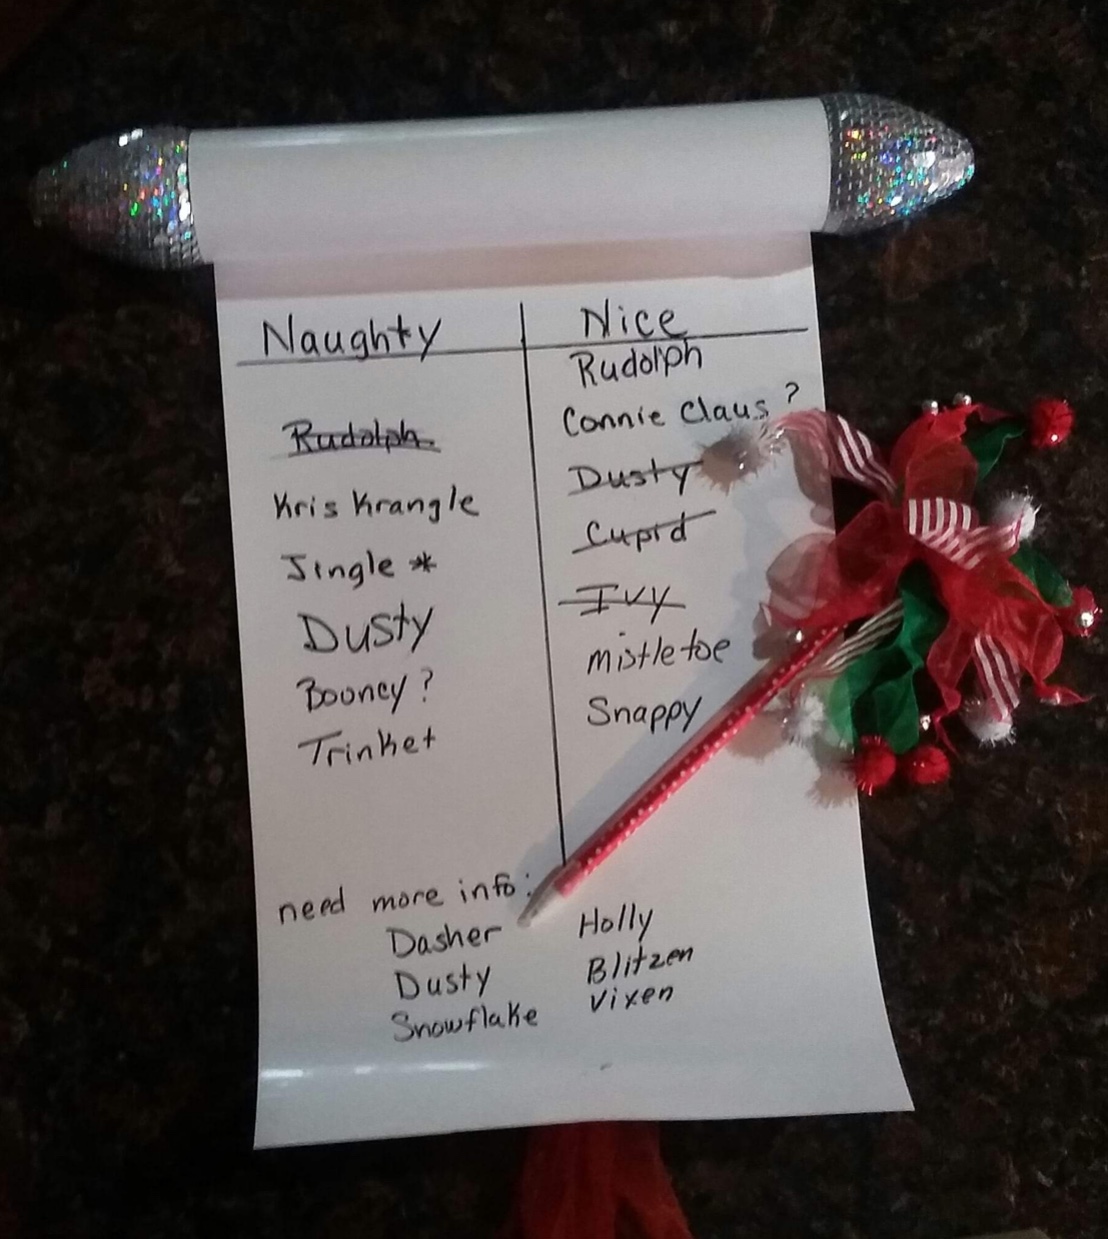 Naughty
Rudolph
Kris Krangle
Jingle *
Dusty
Bouncy ?
Trinket
Nice
Rudolph
Connie Claus ?
Dusty
Cupid
Ivy
mistletoe
Snappy
need more info:
Dasher
Dusty
Snowflake
Holly
Blitzen
Vixen